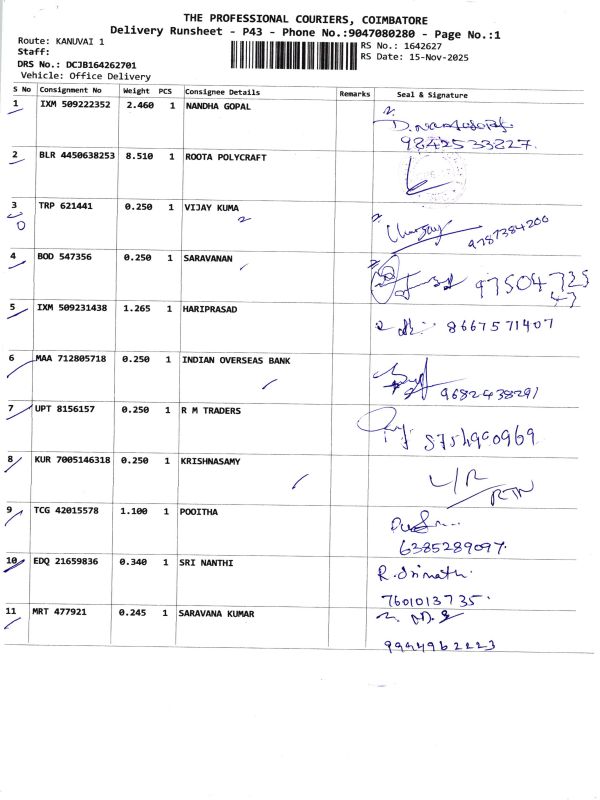 THE PROFESSIONAL COURIERS, COIMBATORE
Delivery Runsheet - P43 - Phone No.:9047080280 - Page No.:1
Route: KANUVAI 1
RS No.: 1642627
Staff:
RS Date: 15-Nov-2025
DRS No.: DCJB164262701
Vehicle: Office Delivery
S No Consignment No Weight PCS Consignee Details Remarks Seal & Signature
1 IXM 509222352 2.460 1 NANDHA GOPAL
9842533827
2 BLR 4450638253 8.510 1 ROOTA POLYCRAFT
3 TRP 621441 0.250 1 VIJAY KUMA
9787384200
4 BOD 547356 0.250 1 SARAVANAN
97504725
47
5 IXM 509231438 1.265 1 HARIPRASAD
8667571407
6 MAA 712805718 0.250 1 INDIAN OVERSEAS BANK
9682438291
7 UPT 8156157 0.250 1 R M TRADERS
8754900969
8 KUR 7005146318 0.250 1 KRISHNASAMY
L/R
RTN
9 TCG 42015578 1.100 1 POOITHA
6385289097.
10 EDQ 21659836 0.340 1 SRI NANTHI
R. Srinath.
7601013735.
11 MRT 477921 0.245 1 SARAVANA KUMAR
9994962223